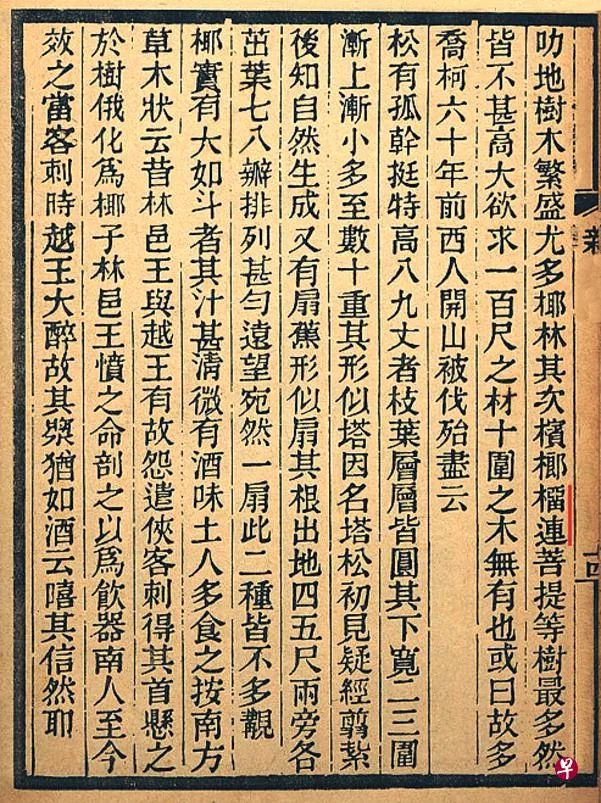 叻地樹木繁盛尤多椰林其次檳榔橊連菩提等樹最多然
皆不甚高大欲求一百尺之材十圍之木無有也或曰故多
喬柯六十年前西人開山被伐殆盡云
松有孤幹挺特高八九丈者枝葉層層皆圓其下寬二三圍
漸上漸小多至數十重其形似塔因名塔松初見疑經翦紮
後知自然生成又有扇蕉形似扇其根出地四五尺兩旁各
茁葉七八瓣排列甚勻遠望宛然一扇此二種皆不多覯
椰實有大如斗者其汁甚清微有酒味土人多食之按南方
草木狀云昔林邑王與越王有故怨遣俠客刺得其首懸之
於樹俄化爲椰子林邑王憤之命剖之以爲飲器南人至今
效之當客刺時越王大醉故其漿猶如酒云嘻其信然耶
早